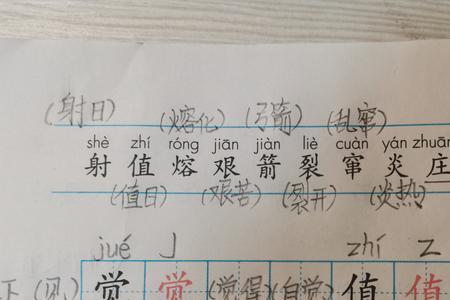 (射日) (熔化) (弓箭) (乱窜)
shè zhí róng jiān jiàn liè cuàn yán zhuān
射 值 熔 艰 箭 裂 窜 炎 庄
(值日) (艰苦) (裂开) (炎热)
jué 丿 zhí Z
下(见) 觉 觉 (觉得)(自觉) 值 值